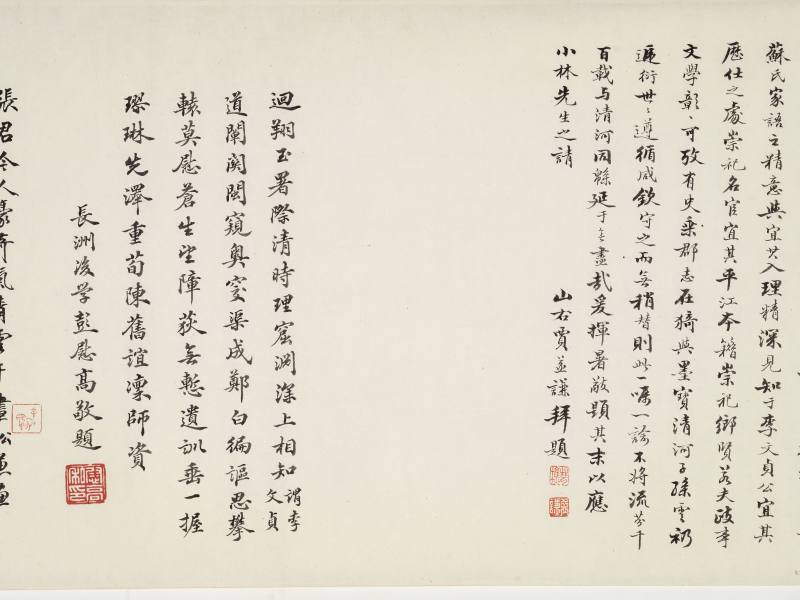 蘇氏家語之精意與宜其入理精深見知于李文貞公宜其
歷仕之處崇祀名宦宜其平江本籍崇祀鄉賢若夫政事
文學彰〻可攷有史乘郡志在猗與墨寶清河子孫雲礽
遞衍世〻遵循咸欽守之而無稍替則此一囑一診不將流芬千
百載与清河同緜延于無盡哉爰揮暑敬題其末以應
小林先生之請
山右賈並謙拜題
迴翔玉署際清時理窟淵深上相知謂李文貞
道闡關閩窺奧窔渠成鄭白徧謳思攀
轅莫慰蒼生望障荻無慙遺訓垂一握
璆琳先澤重荀陳舊誼凜師資
長洲後学彭慰高敬題
張君今人豪奇氣